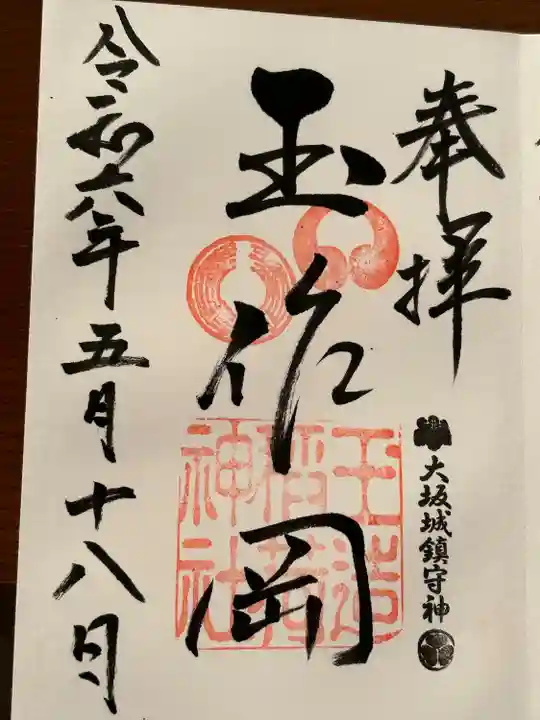 奉拝
大坂城鎮守神
玉作岡
玉造
稲荷
神社
令和六年五月十八日